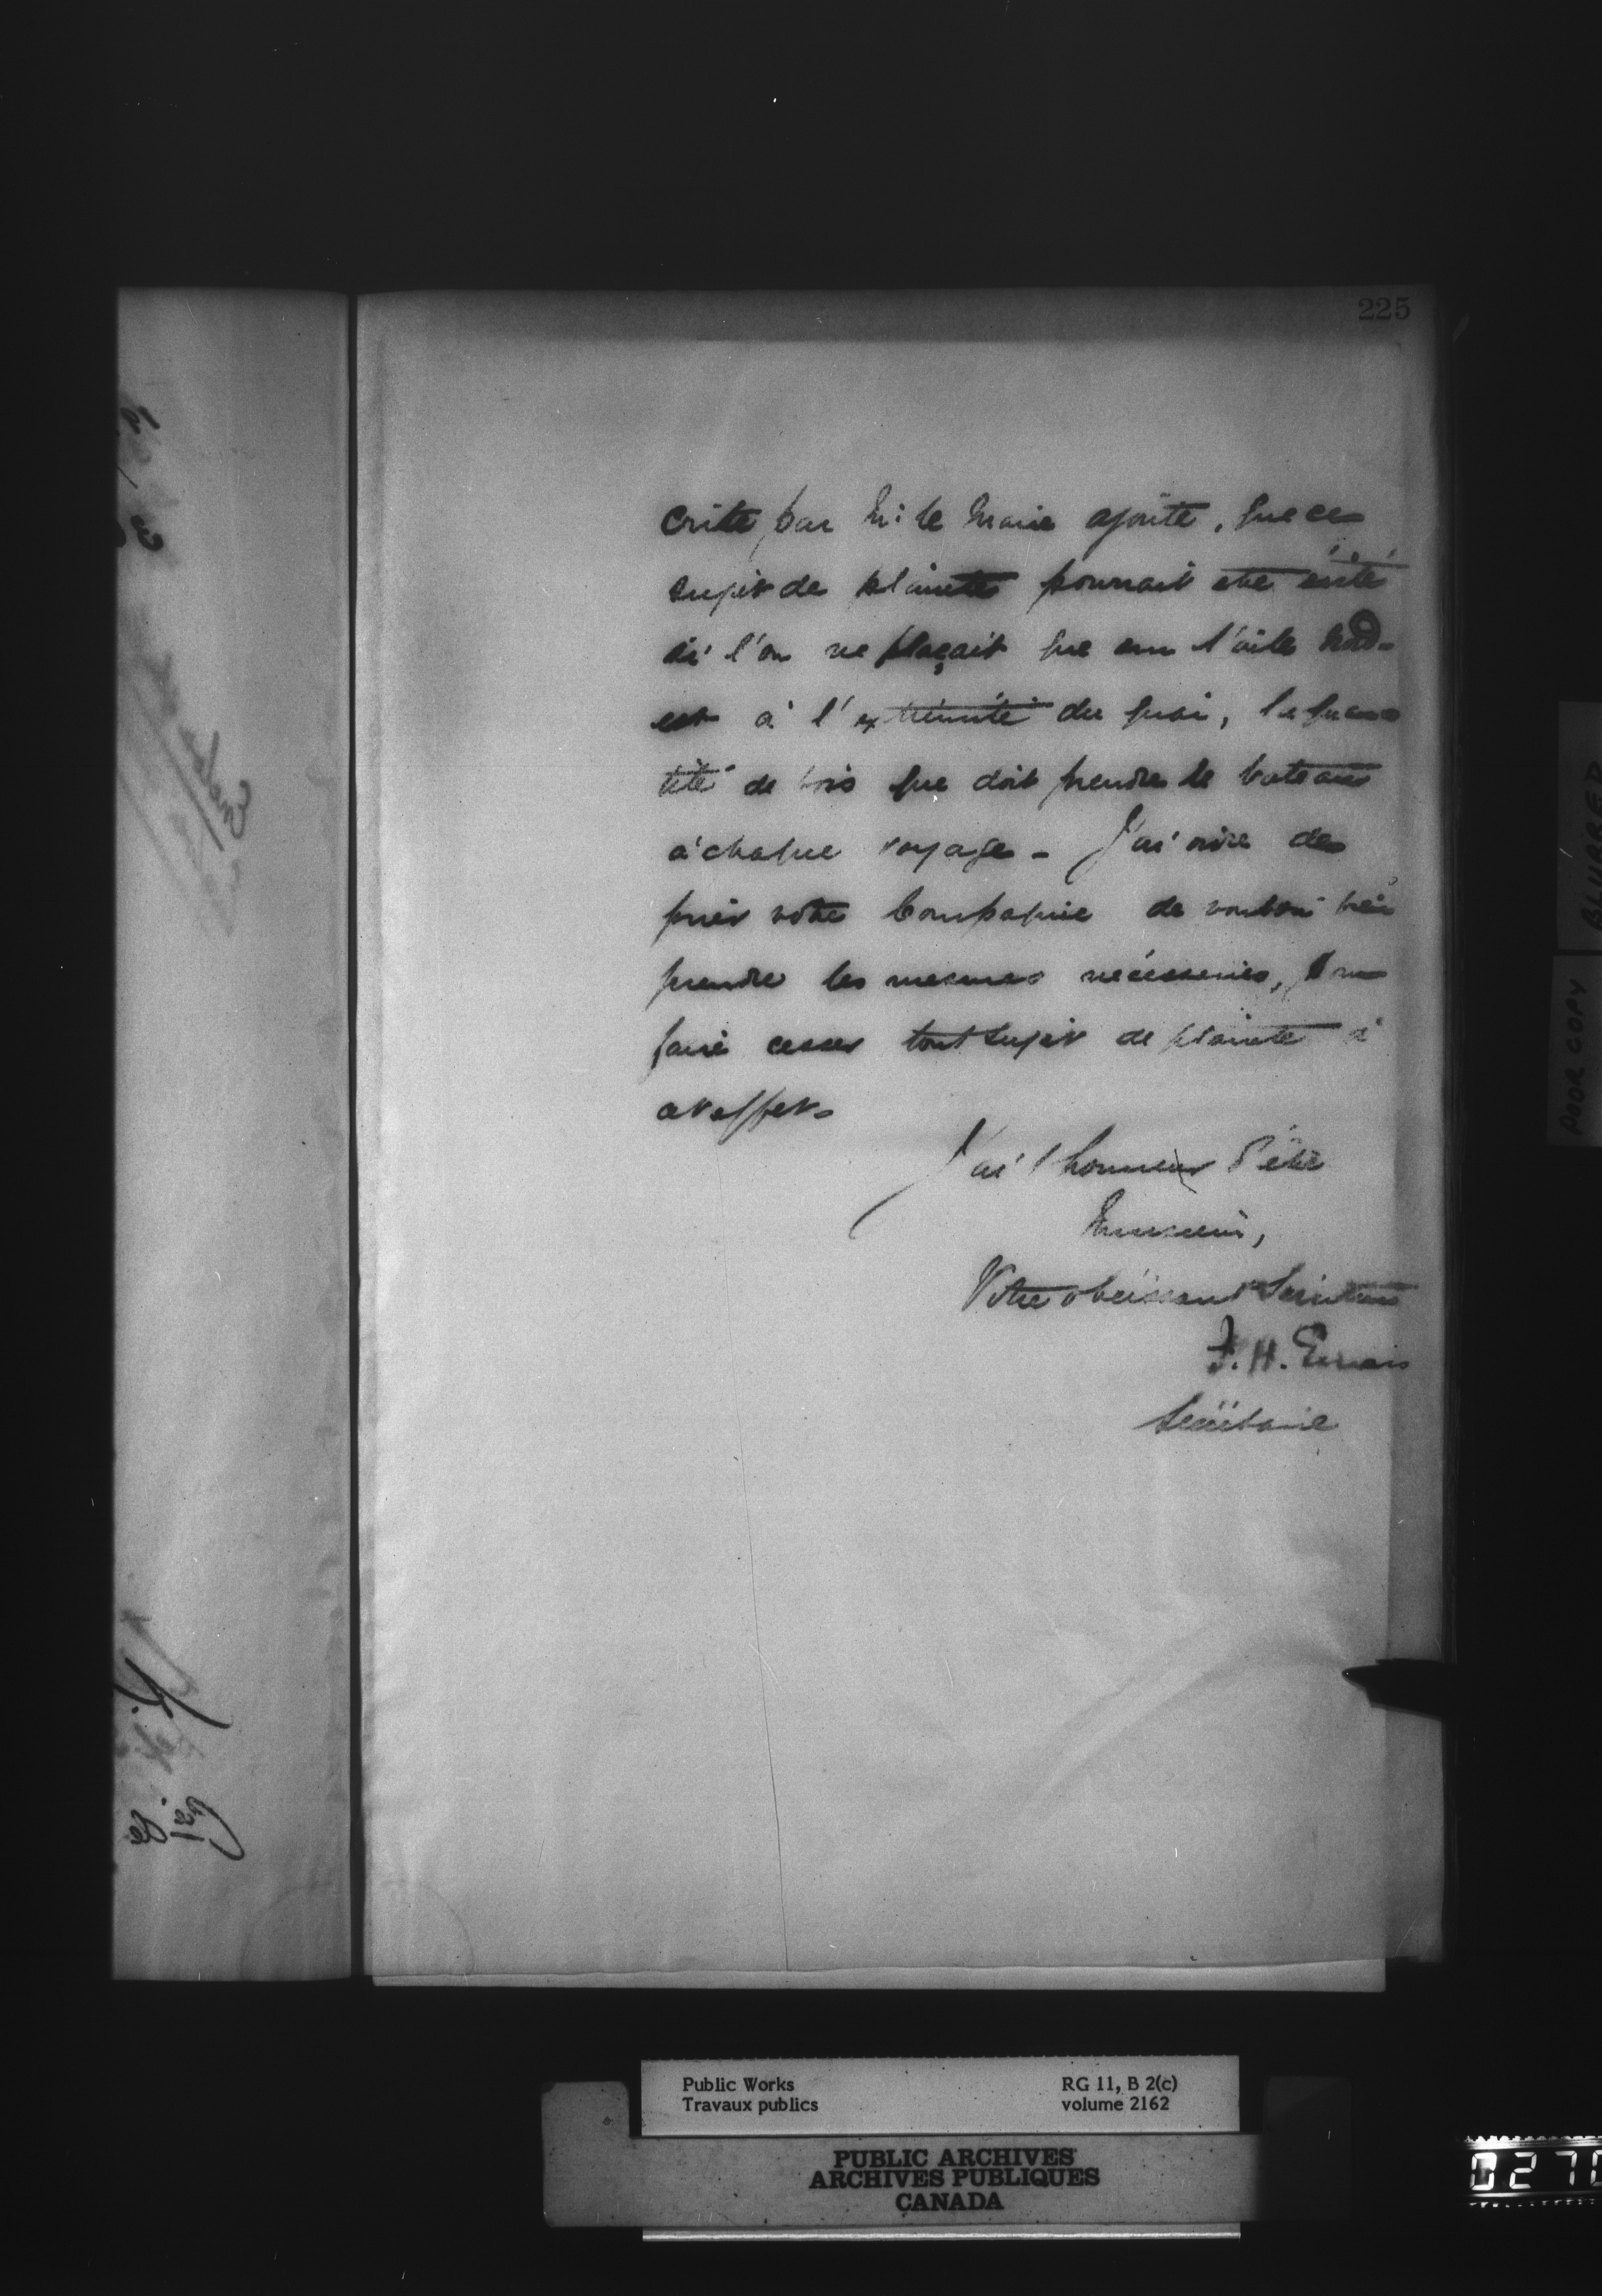 225
crite par M. le Maire ajoute, que ce
sujet de plainte pourrait être évité
si l'on ne plaçait que sur l'aile nord-
est à l'extrémité du quai, la quan
tité de bois que doit prendre le bateau
à chaque voyage - J'ai ordre de
prier votre Compagnie de vouloir bien
prendre les mesures nécessaires, pour
faire cesser tout sujet de plainte à
cet effet.
J'ai l'honneur d'être
Monsieur,
Votre obéissant Serviteur
F. H. Ennis
Secrétaire
POOR COPY
BLURRED
Public Works
Travaux publics
RG 11, B 2(c)
volume 2162
PUBLIC ARCHIVES
ARCHIVES PUBLIQUES
CANADA